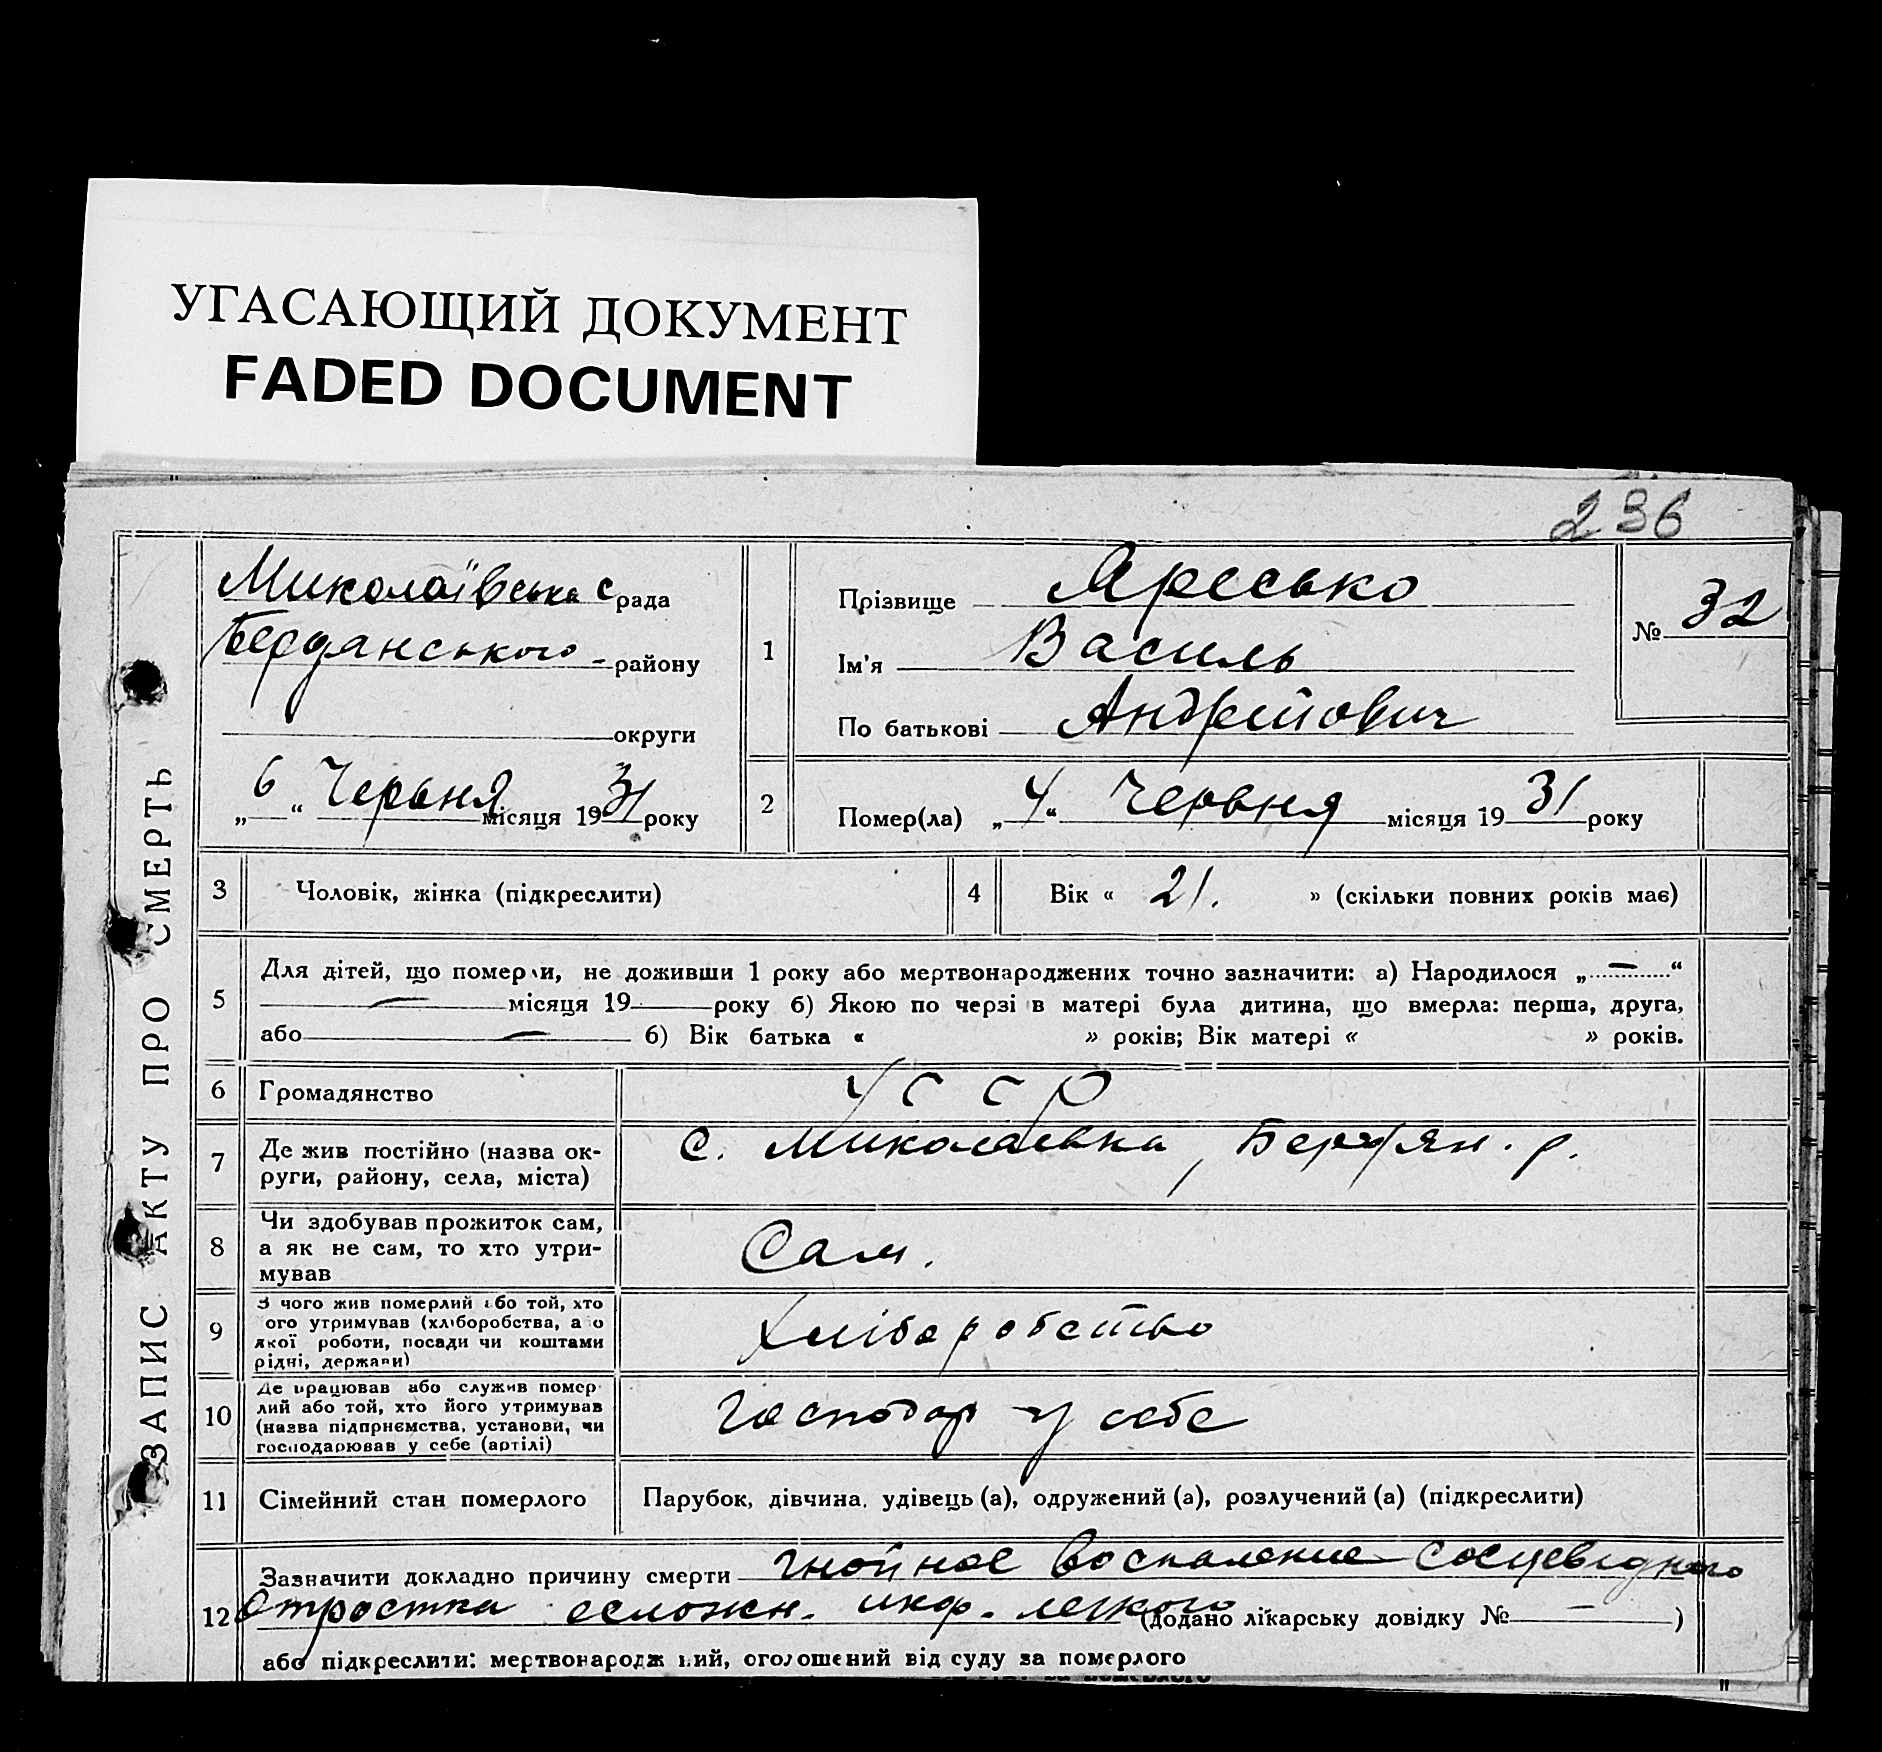 УГАСАЮЩИЙ ДОКУМЕНТ
FADED DOCUMENT
236
ЗАПИС АКТУ ПРО СМЕРТЬ
Миколаївська с рада
Бердянського району
округи
„6“ Червня місяця 1931 року
1
Прізвище Яресько
Ім'я Василь
По батькові Андрійович
№ 32
2
Помер(ла) „4“ Червня місяця 1931 року
3 Чоловік, жінка (підкреслити)
4 Вік « 21. » (скільки повних років має)
5
Для дітей, що померли, не доживши 1 року або мертвонароджених точно зазначити: а) Народилося „—“
— місяця 19 року б) Якою по черзі в матері була дитина, що вмерла: перша, друга,
або — б) Вік батька « » років; Вік матері « » років.
6 Громадянство УССР
7 Де жив постійно (назва ок-
руги, району, села, міста)
с. Миколаевка, Бердян. р.
8 Чи здобував прожиток сам,
а як не сам, то хто утри-
мував
Сам.
9 З чого жив померлий або той, хто
ого утримував (хліборобства, а о
якої роботи, посади чи коштами
рідні, держави)
Хліборобство
10 Де працював або служив помер
лий або той, хто його утримував
(назва підприємства, установи, чи
господарював у себе (артілі)
Господар у себе
11 Сімейний стан померлого Парубок, дівчина, удівець (а), одружений (а), розлучений (а) (підкреслити)
12
Зазначити докладно причину смерти гнойное воспаление сосцевидного
отростка осложн. инф. легкого (додано лікарську довідку № — )
або підкреслити: мертвонародж ний, оголошений від суду за померлого